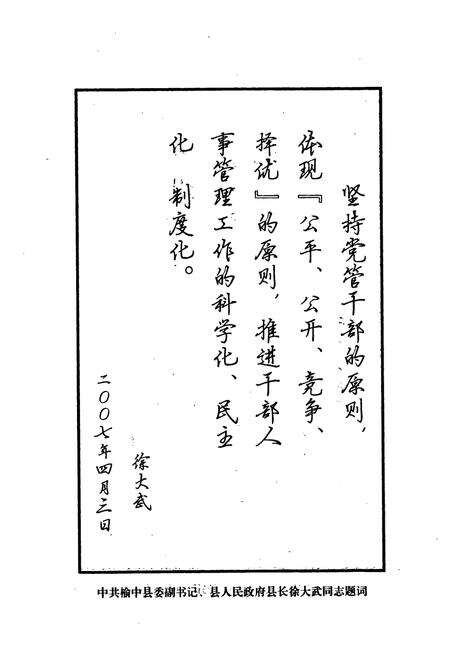 坚持党管干部的原则，
体现『公平、公开、竞争、
择优』的原则，推进干部人
事管理工作的科学化、民主
化 制度化。
徐大武
二〇〇七年四月三日
中共榆中县委副书记、县人民政府县长徐大武同志题词